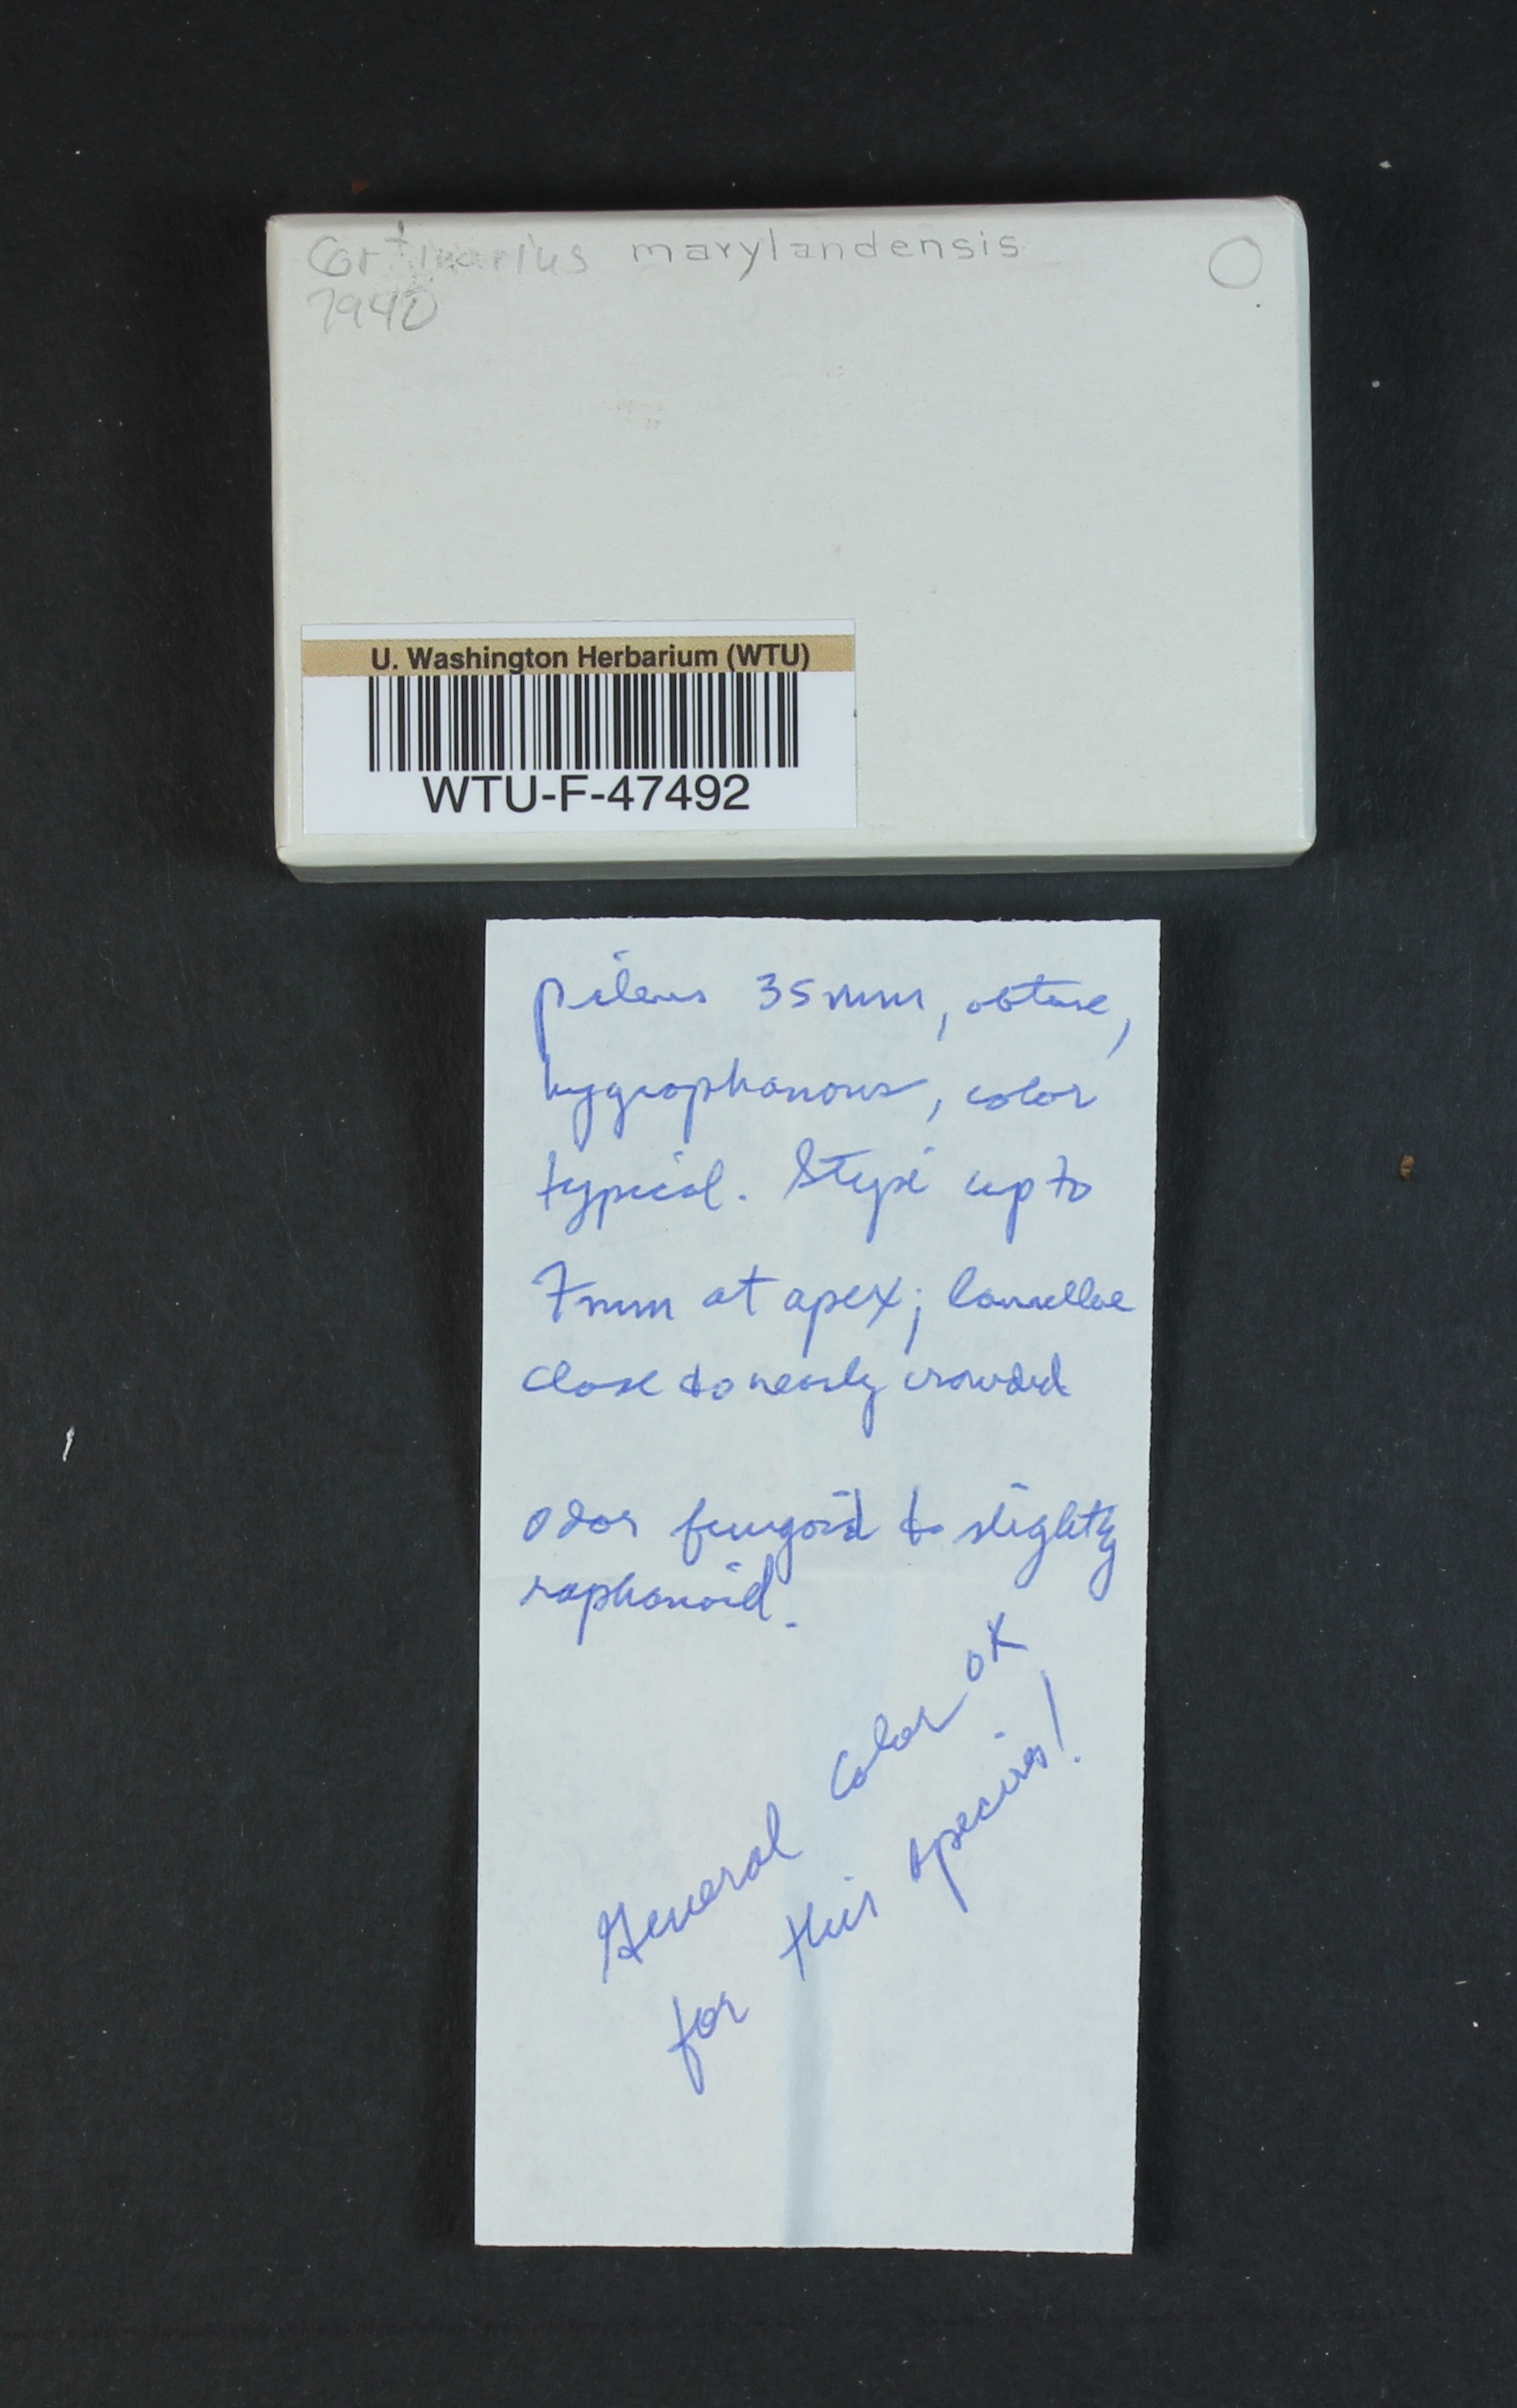 Cortinarius marylandensis
7940
U. Washington Herbarium (WTU)
WTU-F-47492
pileus 35mm, obtuse,
hygrophanous, color
typical. Stipe up to
7mm at apex; lamellae
close to nearly crowded
odor fungoid to slightly
raphanoid.
General color OK
for this species!